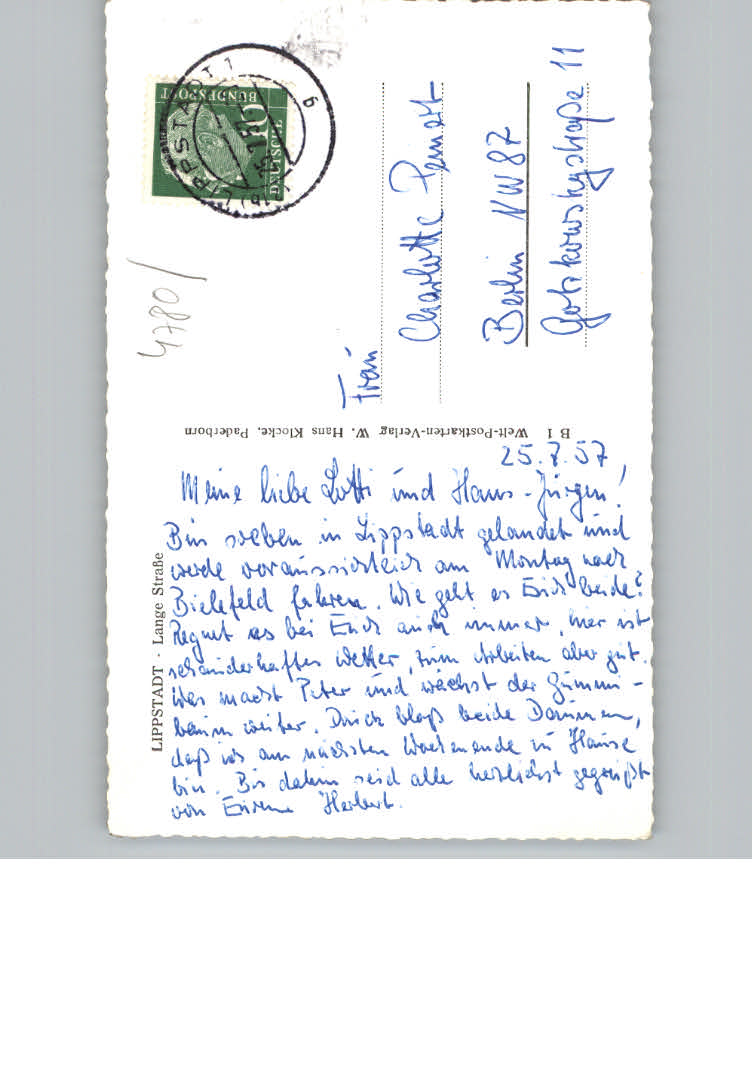 25.7.57
Meine liebe Lotti und Hans-Jürgen!
Bin soeben in Lippstadt gelandet und
werde voraussichtlich am Montag nach
Bielefeld fahren. Wie geht es Euch beide?
Regnet es bei Euch auch immer, hier ist
schauderhaftes Wetter, zum Arbeiten aber gut.
Was macht Peter und wächst der Gummi-
baum weiter. Drück bloß beide Daumen,
daß ich am nächsten Wochenende zu Hause
bin. Bis dahin seid alle herzlichst gegrüßt
von Eurem Herbert.
LIPPSTADT · Lange Straße
B 1 Welt-Postkarten-Verlag W. Hans Klocke, Paderborn
Frau
Charlotte
Berlin NW 87
Gotzkowskystraße 11
4780/
DEUTSCHE
BUNDESPOST
10
LIPPSTADT 1